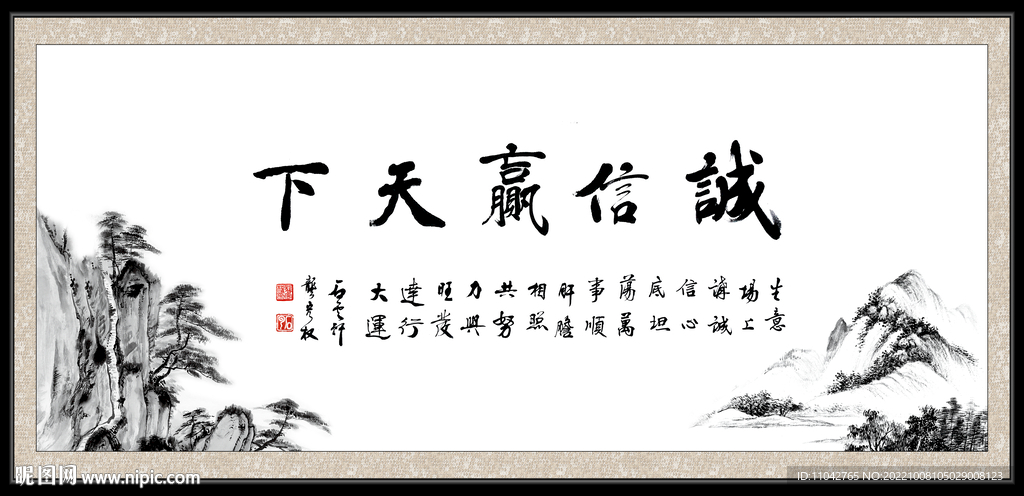 誠信贏天下
生意
場上
講誠
信心
底坦
蕩萬
事順
肝膽
相照
共努
力興
旺發
達行
大運
昵图网 www.nipic.com
ID:11042765 NO:20221008105029008123